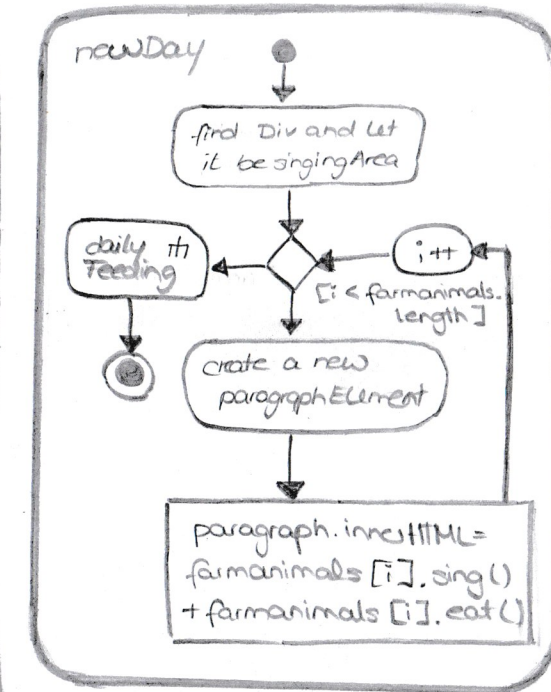 newDay
find Div and let
it be singingArea
daily
Feeding
i++
[i < farmanimals.
length]
create a new
paragraphElement
paragraph.innerHTML=
farmanimals [i].sing()
+ farmanimals [i].eat()